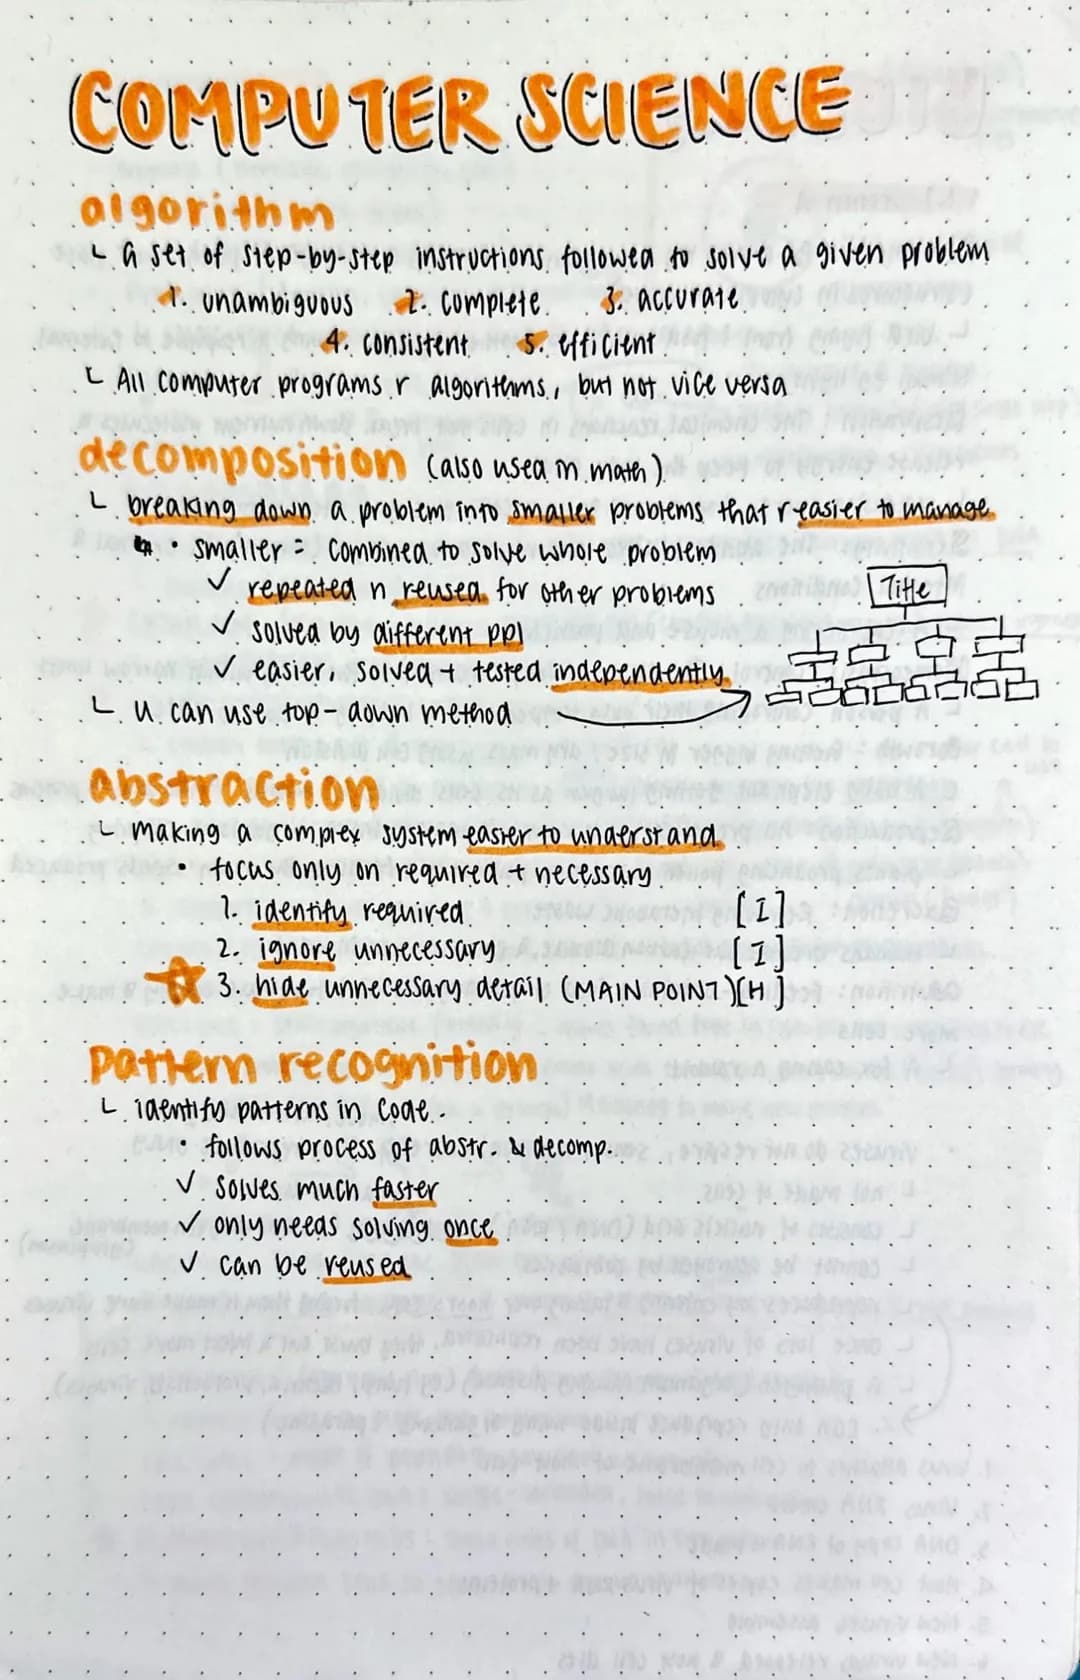 COMPUTER SCIENCE
algorithm
a set of step-by-step instructions followed to solve a given problem
1. unambiguous 2. complete 3. accurate
4. consistent 5. efficient
All computer programs r algorithms, but not vice versa
decomposition (also used in math)
breaking down a problem into smaller problems that r easier to manage
• smaller = combined to solve whole problem
✓ repeated n reused for other problems
Title
✓ solved by different ppl
✓ easier, solved + tested independently
u can use top-down method
Abstraction
making a complex system easier to understand
• focus only on required + necessary
1. identify required [I]
2. ignore unnecessary [I]
3. hide unnecessary detail (MAIN POINT) [H]
Pattern recognition
identify patterns in code.
• follows process of abstr. & decomp.
✓ solves much faster
✓ only needs solving once
✓ can be reused